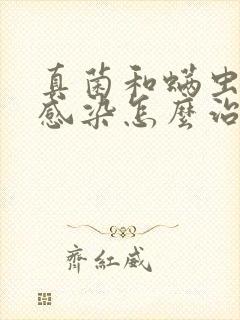 真菌和螨虫
感染怎麼治
齊紅威